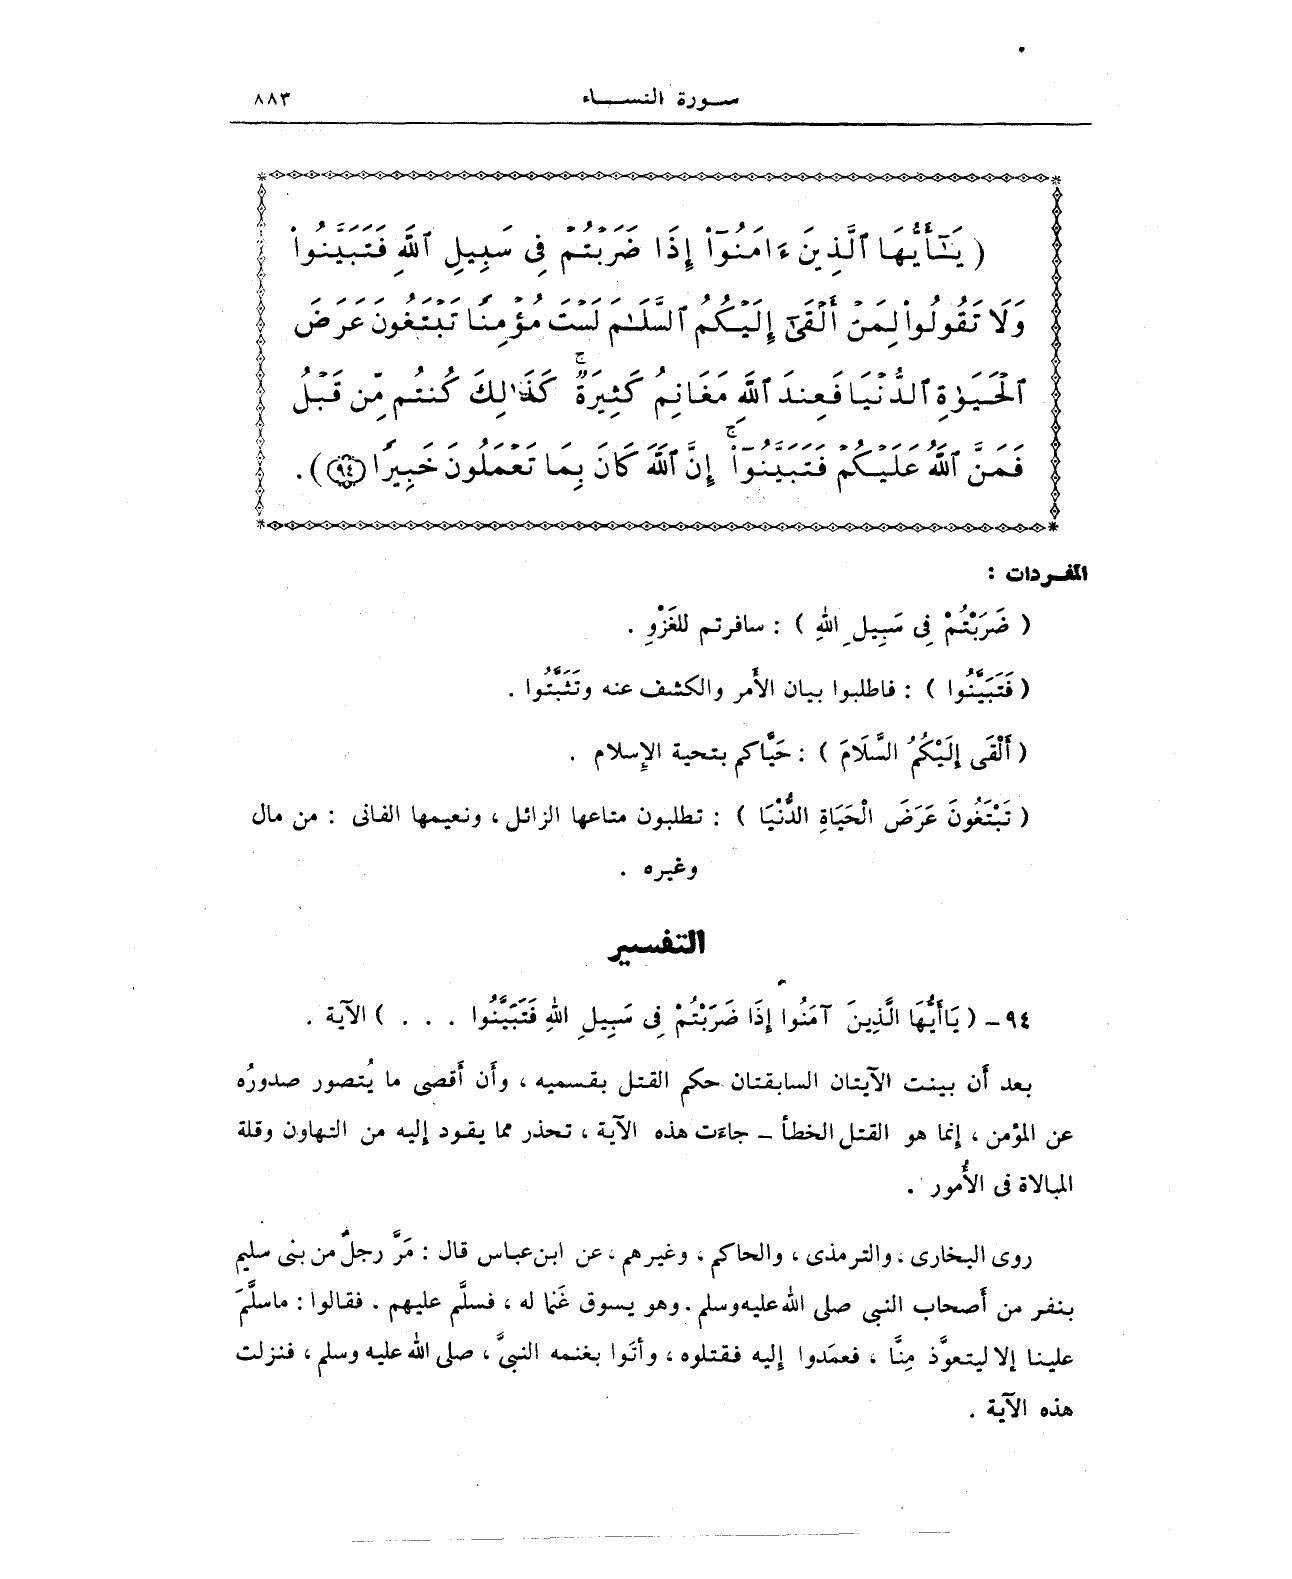 سورة النساء ٨٨٣
( يَـٰٓأَيُّهَا ٱلَّذِينَ ءَامَنُوٓاْ إِذَا ضَرَبْتُمْ فِى سَبِيلِ ٱللَّهِ فَتَبَيَّنُواْ
وَلَا تَقُولُواْ لِمَنْ أَلْقَىٰٓ إِلَيْكُمُ ٱلسَّلَـٰمَ لَسْتَ مُؤْمِنًا تَبْتَغُونَ عَرَضَ
ٱلْحَيَوٰةِ ٱلدُّنْيَا فَعِندَ ٱللَّهِ مَغَانِمُ كَثِيرَةٌ ۚ كَذَٰلِكَ كُنتُم مِّن قَبْلُ
فَمَنَّ ٱللَّهُ عَلَيْكُمْ فَتَبَيَّنُوٓاْ ۚ إِنَّ ٱللَّهَ كَانَ بِمَا تَعْمَلُونَ خَبِيرًا ﴿٩٤﴾ ) .
المفردات :
( ضَرَبْتُمْ فِى سَبِيلِ اللهِ ) : سافرتم للغَزْوِ .
( فَتَبَيَّنُوا ) : فاطلبوا بيان الأَمر والكشف عنه وتَثَبَّتُوا .
( أَلْقَى إِلَيْكُمُ السَّلَامَ ) : حَيَّاكم بتحية الإِسلام .
( تَبْتَغُونَ عَرَضَ الْحَيَاةِ الدُّنْيَا ) : تطلبون متاعها الزائل ، ونعيمها الفانى : من مال
وغيره .
التفسير
٩٤ – ( يَاأَيُّهَا الَّذِينَ آمَنُوا إِذَا ضَرَبْتُمْ فِى سَبِيلِ اللهِ فَتَبَيَّنُوا . . . ) الآية .
بعد أَن بينت الآيتان السابقتان حكم القتل بقسميه ، وأَن أَقصى ما يُتصور صدورُه
عن المؤمن ، إِنما هو القتل الخطأ – جاءَت هذه الآية ، تحذر مما يقود إليه من التهاون وقلة
المبالاة فى الأُمور .
روى البخارى . والترمذى ، والحاكم ، وغيرهم ، عن ابن عباس قال : مَرَّ رجلٌ من بنى سليم
بنفر من أَصحاب النبى صلى الله عليه وسلم . وهو يسوق غَنما له ، فسلَّم عليهم . فقالوا : ماسلَّمَ
علينا إلا ليتعوَّذ مِنَّا ، فعمَدوا إليه فقتلوه ، وأتَوا بغنمه النبيَّ ، صلى الله عليه وسلم ، فنزلت
هذه الآية .